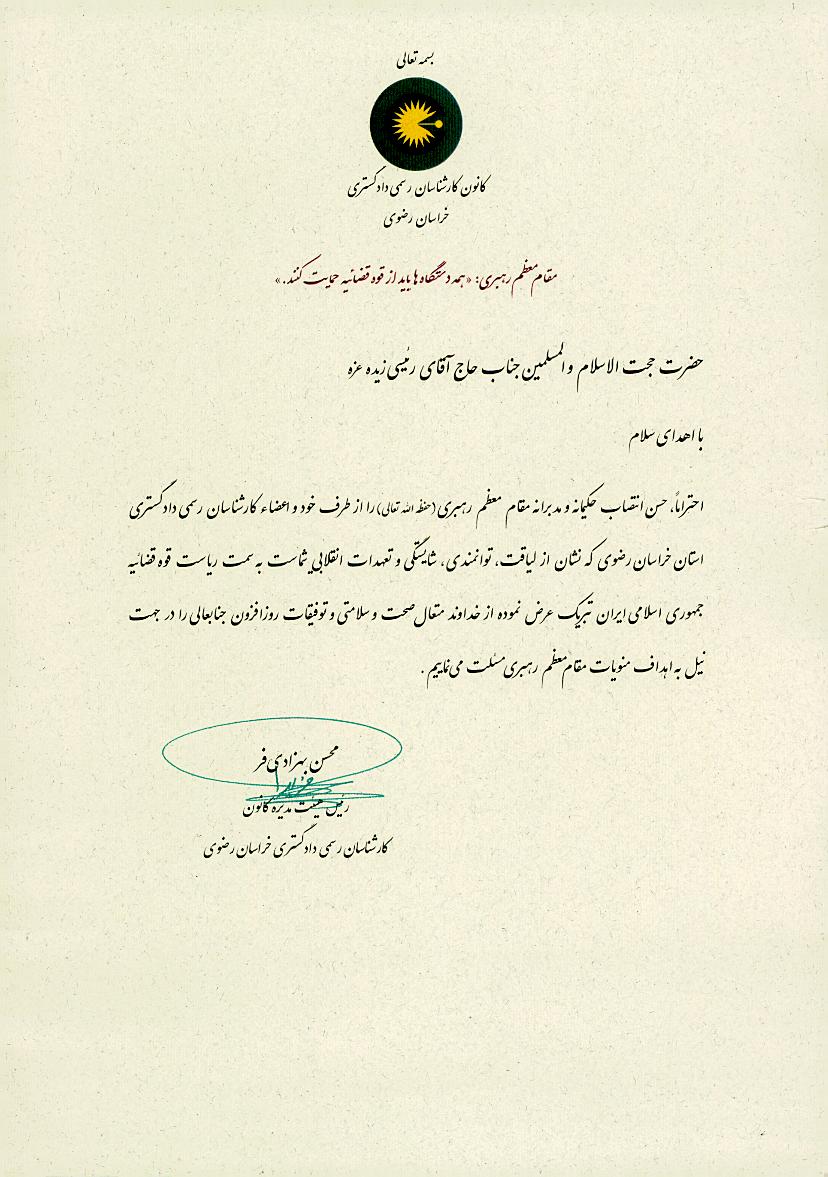 بسمه تعالی
کانون کارشناسان رسمی دادگستری
خراسان رضوی
مقام معظم رهبری: «همه دستگاه ها باید از قوه قضائیه حمایت کنند.»
حضرت حجت الاسلام والمسلمین جناب حاج آقای رئیسی زیده عزه
با اهدای سلام
احتراماً، حسن انتصاب حکیمانه و مدبرانه مقام معظم رهبری (حفظ الله تعالی) را از طرف خود و اعضاء کارشناسان رسمی دادگستری
استان خراسان رضوی که نشان از لیاقت، توانمندی، شایستگی و تعهدات انقلابی شماست به سمت ریاست قوه قضائیه
جمهوری اسلامی ایران تبریک عرض نموده از خداوند متعال صحت و سلامتی و توفیقات روزافزون جنابعالی را در جهت
نیل به اهداف منویات مقام معظم رهبری مسئلت می نماییم .
محسن بهزادی فر
رئیس هیئت مدیره کانون
کارشناسان رسمی دادگستری خراسان رضوی